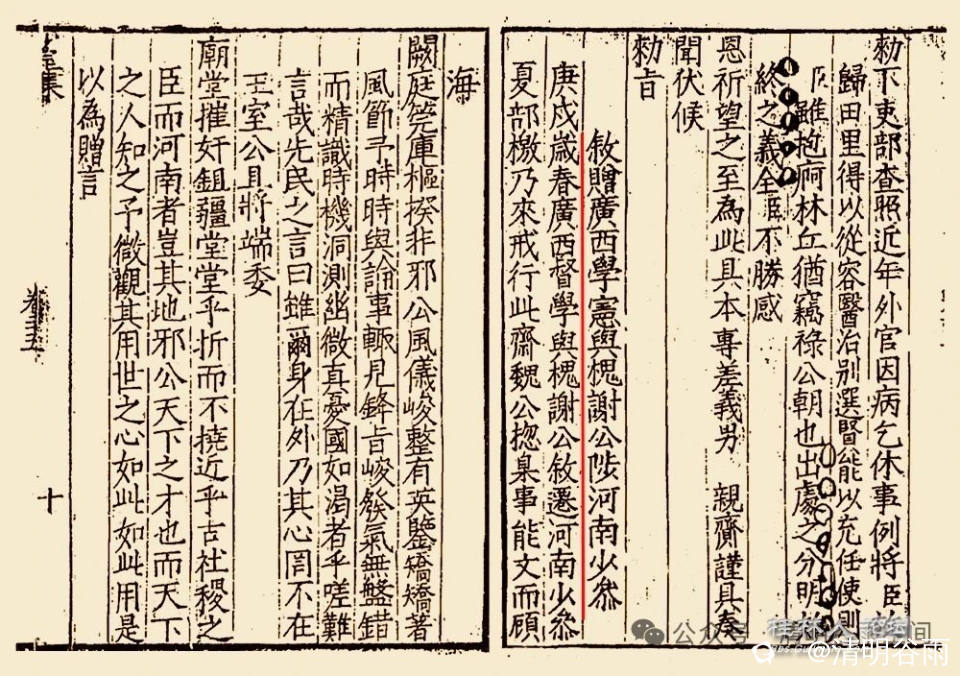 勑下吏部查照近年外官因病乞休事例將臣
歸田里得以從容醫治别選賢能以充任使則
雖抱痾林丘猶竊祿公朝也出處之分明
終之義全臣不勝感
恩祈望之至為此具本專差義男 親齎謹具奏
聞伏候
勑旨
敘贈廣西學憲與槐謝公陟河南少叅
庚戍歲春廣西督學與槐謝公敘遷河南少叅
夏部檄乃來戒行此齋魏公揔臬事能文而頋
海
闕庭筦庫樞揆非邪公風儀峻整有英鑒矯矯著
風節予時時與論事輒見鋒旨峻發氣無盤錯
而精識時機洞測幽微真憂國如渴者乎嗟難
言哉先民之言曰雖爾身在外乃其心罔不在
王室公且將端委
廟堂摧奸鉏彊堂堂乎折而不撓近乎古社稷之
臣而河南者豈其地邪公天下之才也而天下
之人知之予微觀其用世之心如此如此用是
以為贈言
集
十
公众号
@清明谷雨